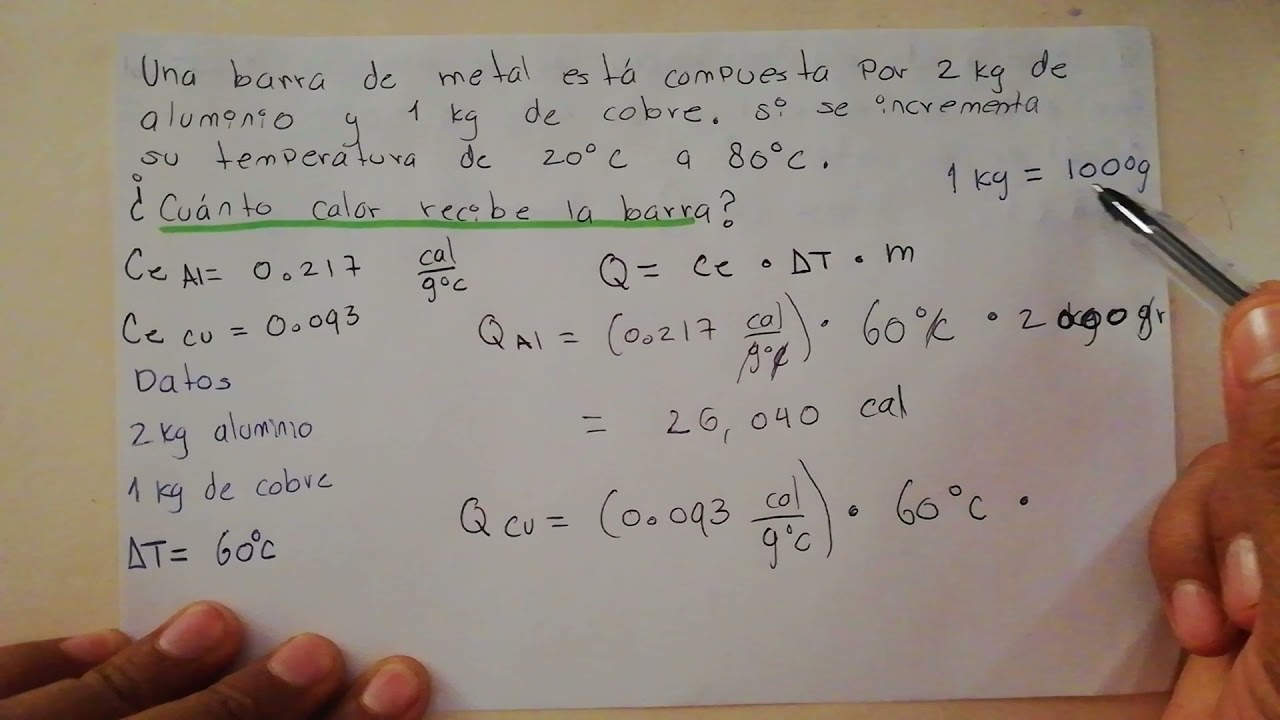 Una barra de metal está compuesta por 2 kg de
aluminio y 1 kg de cobre. si se incrementa
su temperatura de 20°C a 80°C.
1 kg = 1000g
¿Cuánto calor recibe la barra?
Ce Al = 0.217 cal/g°C
Q = Ce • ΔT • m
Ce cu = 0.093
Q Al = (0.217 cal/g°C) • 60°C • 2000 gr
Datos
= 26,040 cal
2 kg aluminio
1 kg de cobre
Q cu = (0.093 cal/g°C) • 60°C •
ΔT = 60°C